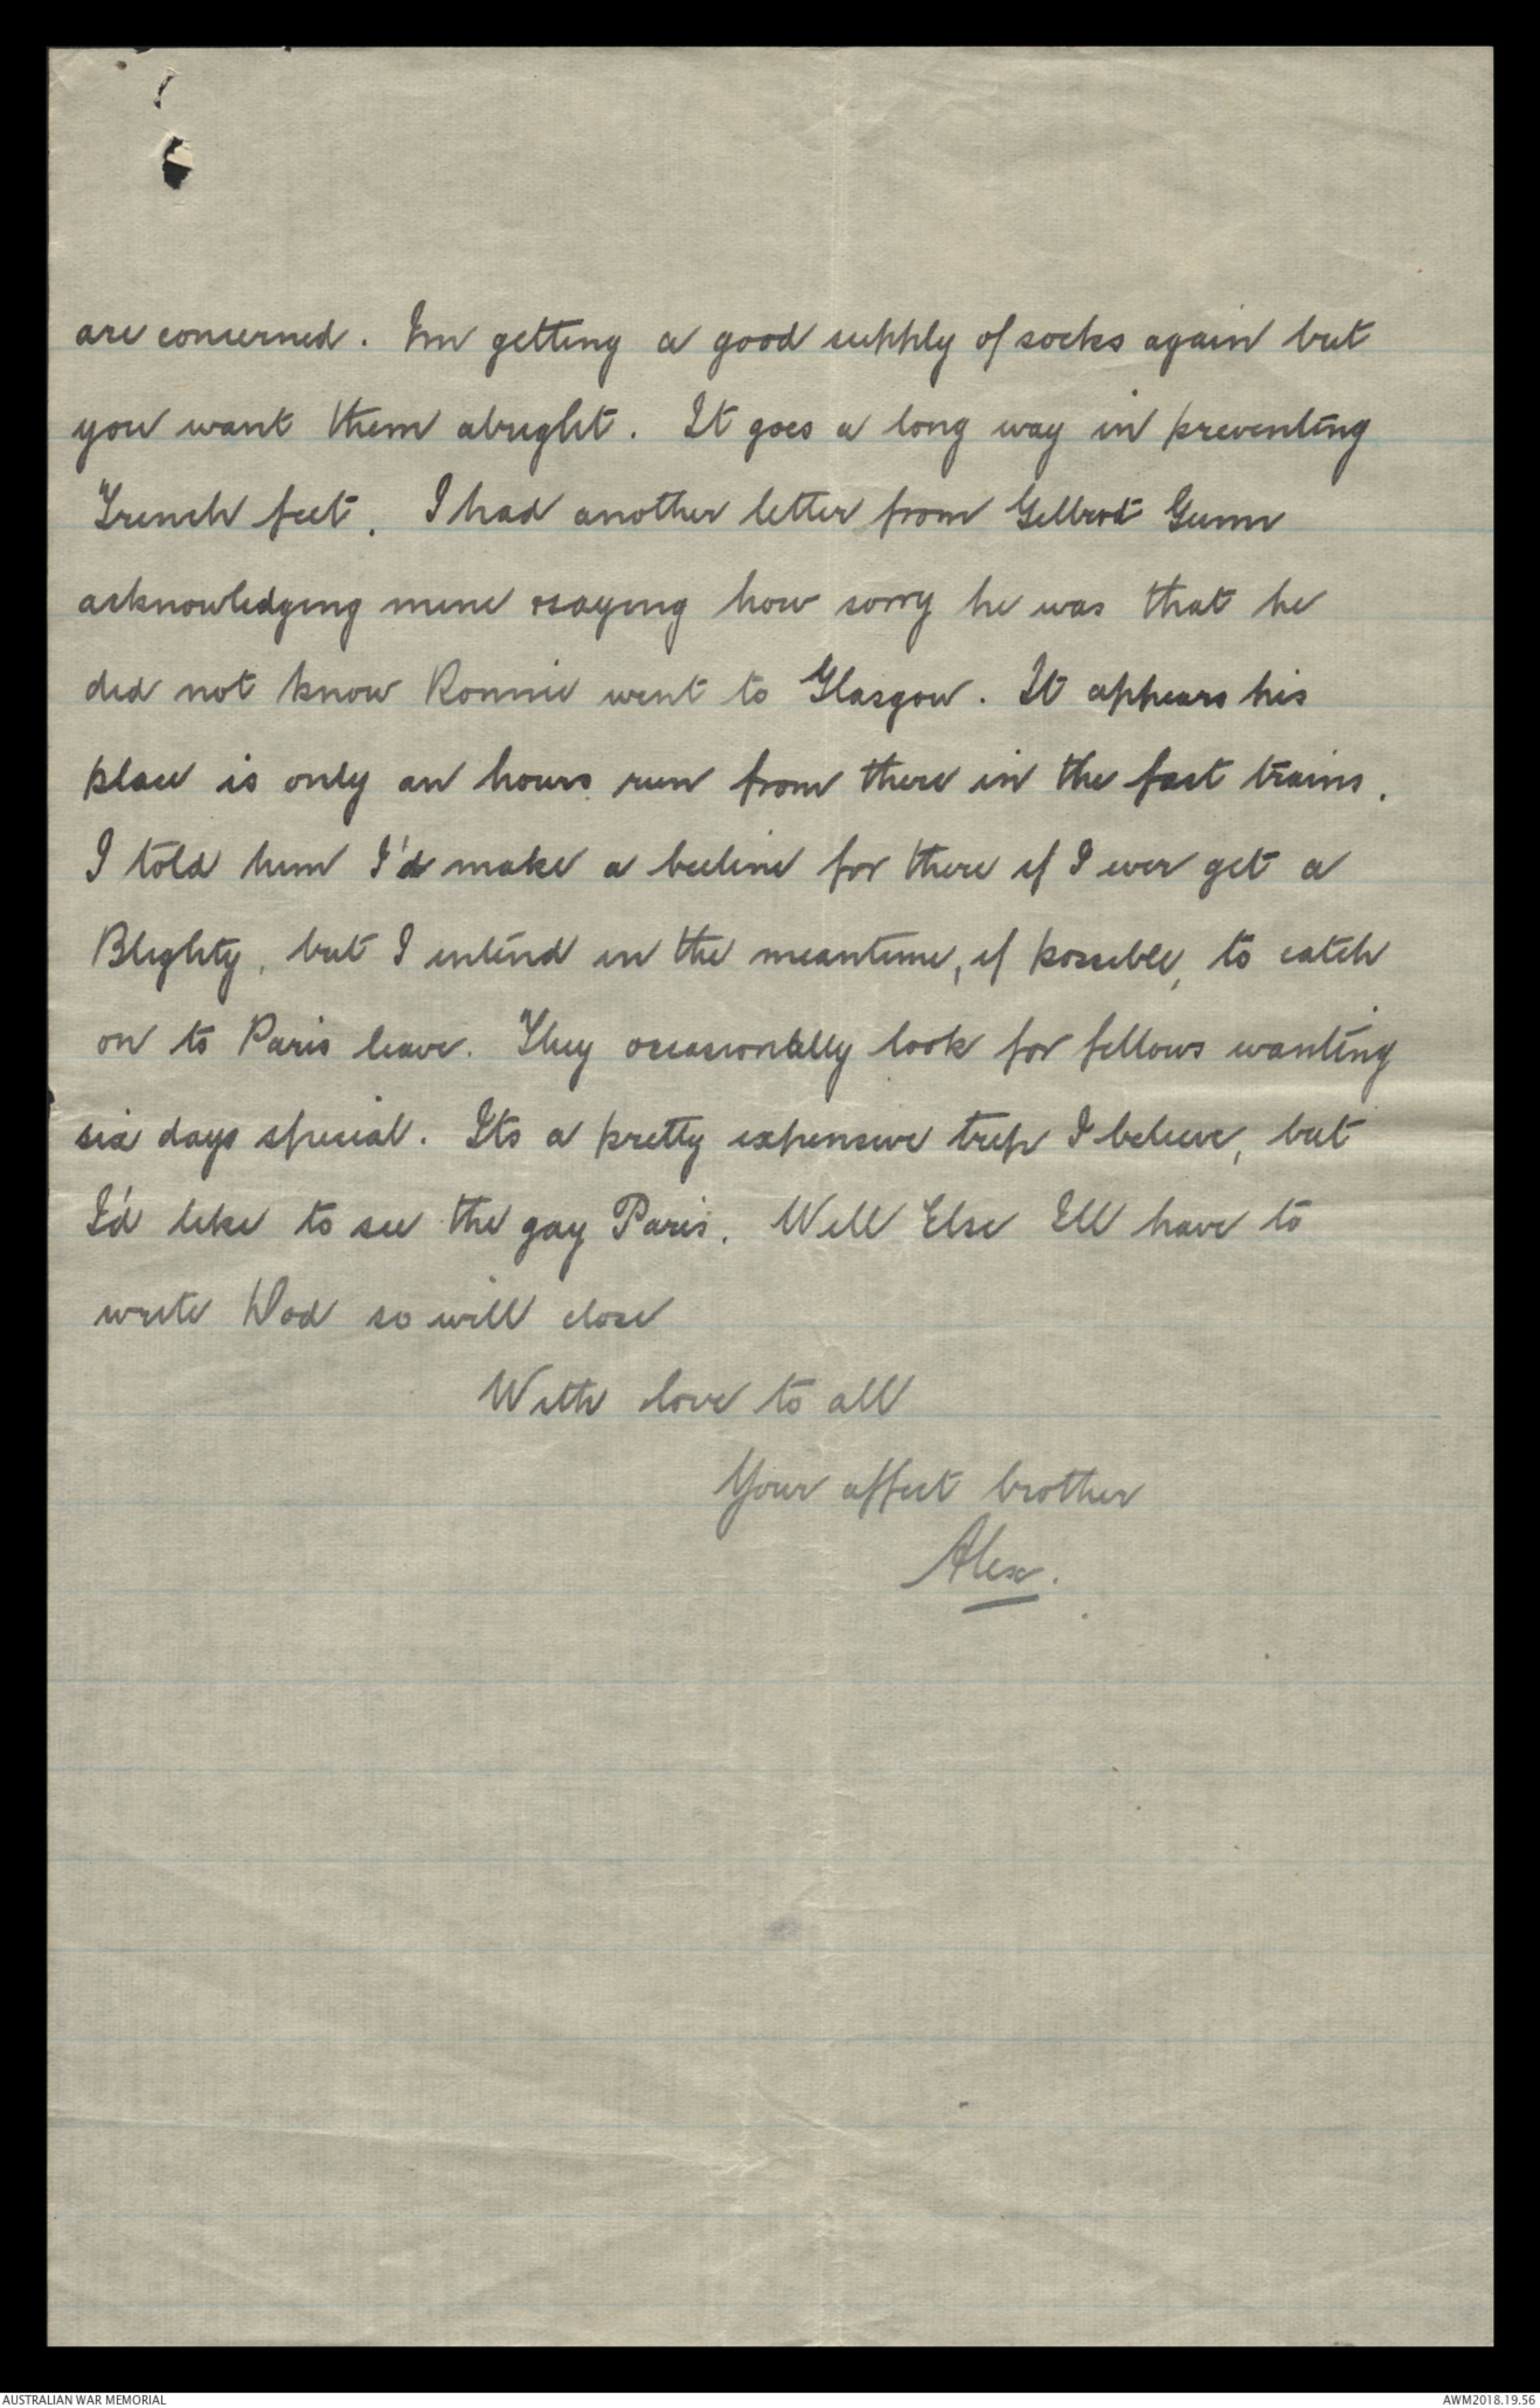 are concerned. Im getting a good supply of socks again but
you want them alright. It goes a long way in preventing
Trench feet. I had another letter from Gilbert Gunn
acknowledging mine & saying how sorry he was that he
did not know Ronnie went to Glasgow. It appears his
place is only an hours run from there in the fast trains.
I told him I'd make a beeline for there if I ever get a
Blighty, but I intend in the meantime, if possible, to catch
on to Paris leave. They occasionally look for fellows wanting
six days special. Its a pretty expensive trip I believe, but
I'd like to see the gay Paris. Well Else Ill have to
write Dad so will close
With love to all
Your affect brother
Alex.
AUSTRALIAN WAR MEMORIAL
AWM2018.19.56